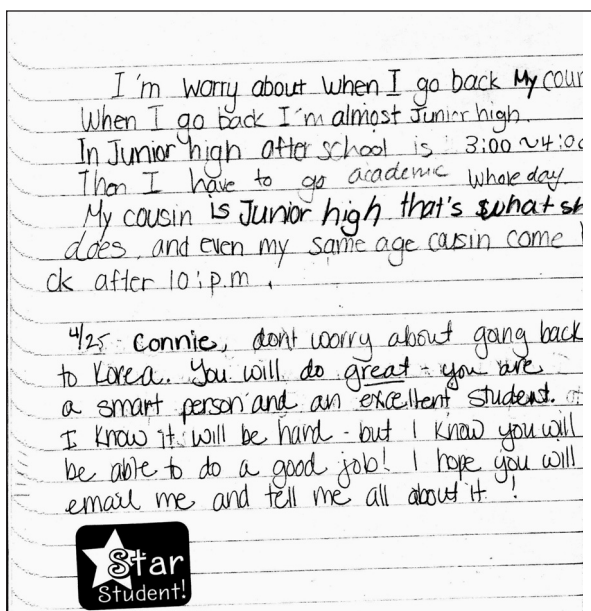 I'm worry about when I go back My coun
When I go back I'm almost Junior high.
In Junior high after school is 3:00 ~4:00
Then I have to go academic whole day
My cousin is Junior high that's what sh
does, and even my same age cousin come
ck after 10:p.m.
4/25 Connie, dont worry about going back
to Korea. You will do great - you are
a smart person and an excellent student.
I know it will be hard - but I know you will
be able to do a good job! I hope you will
email me and tell me all about it!
Star
Student!